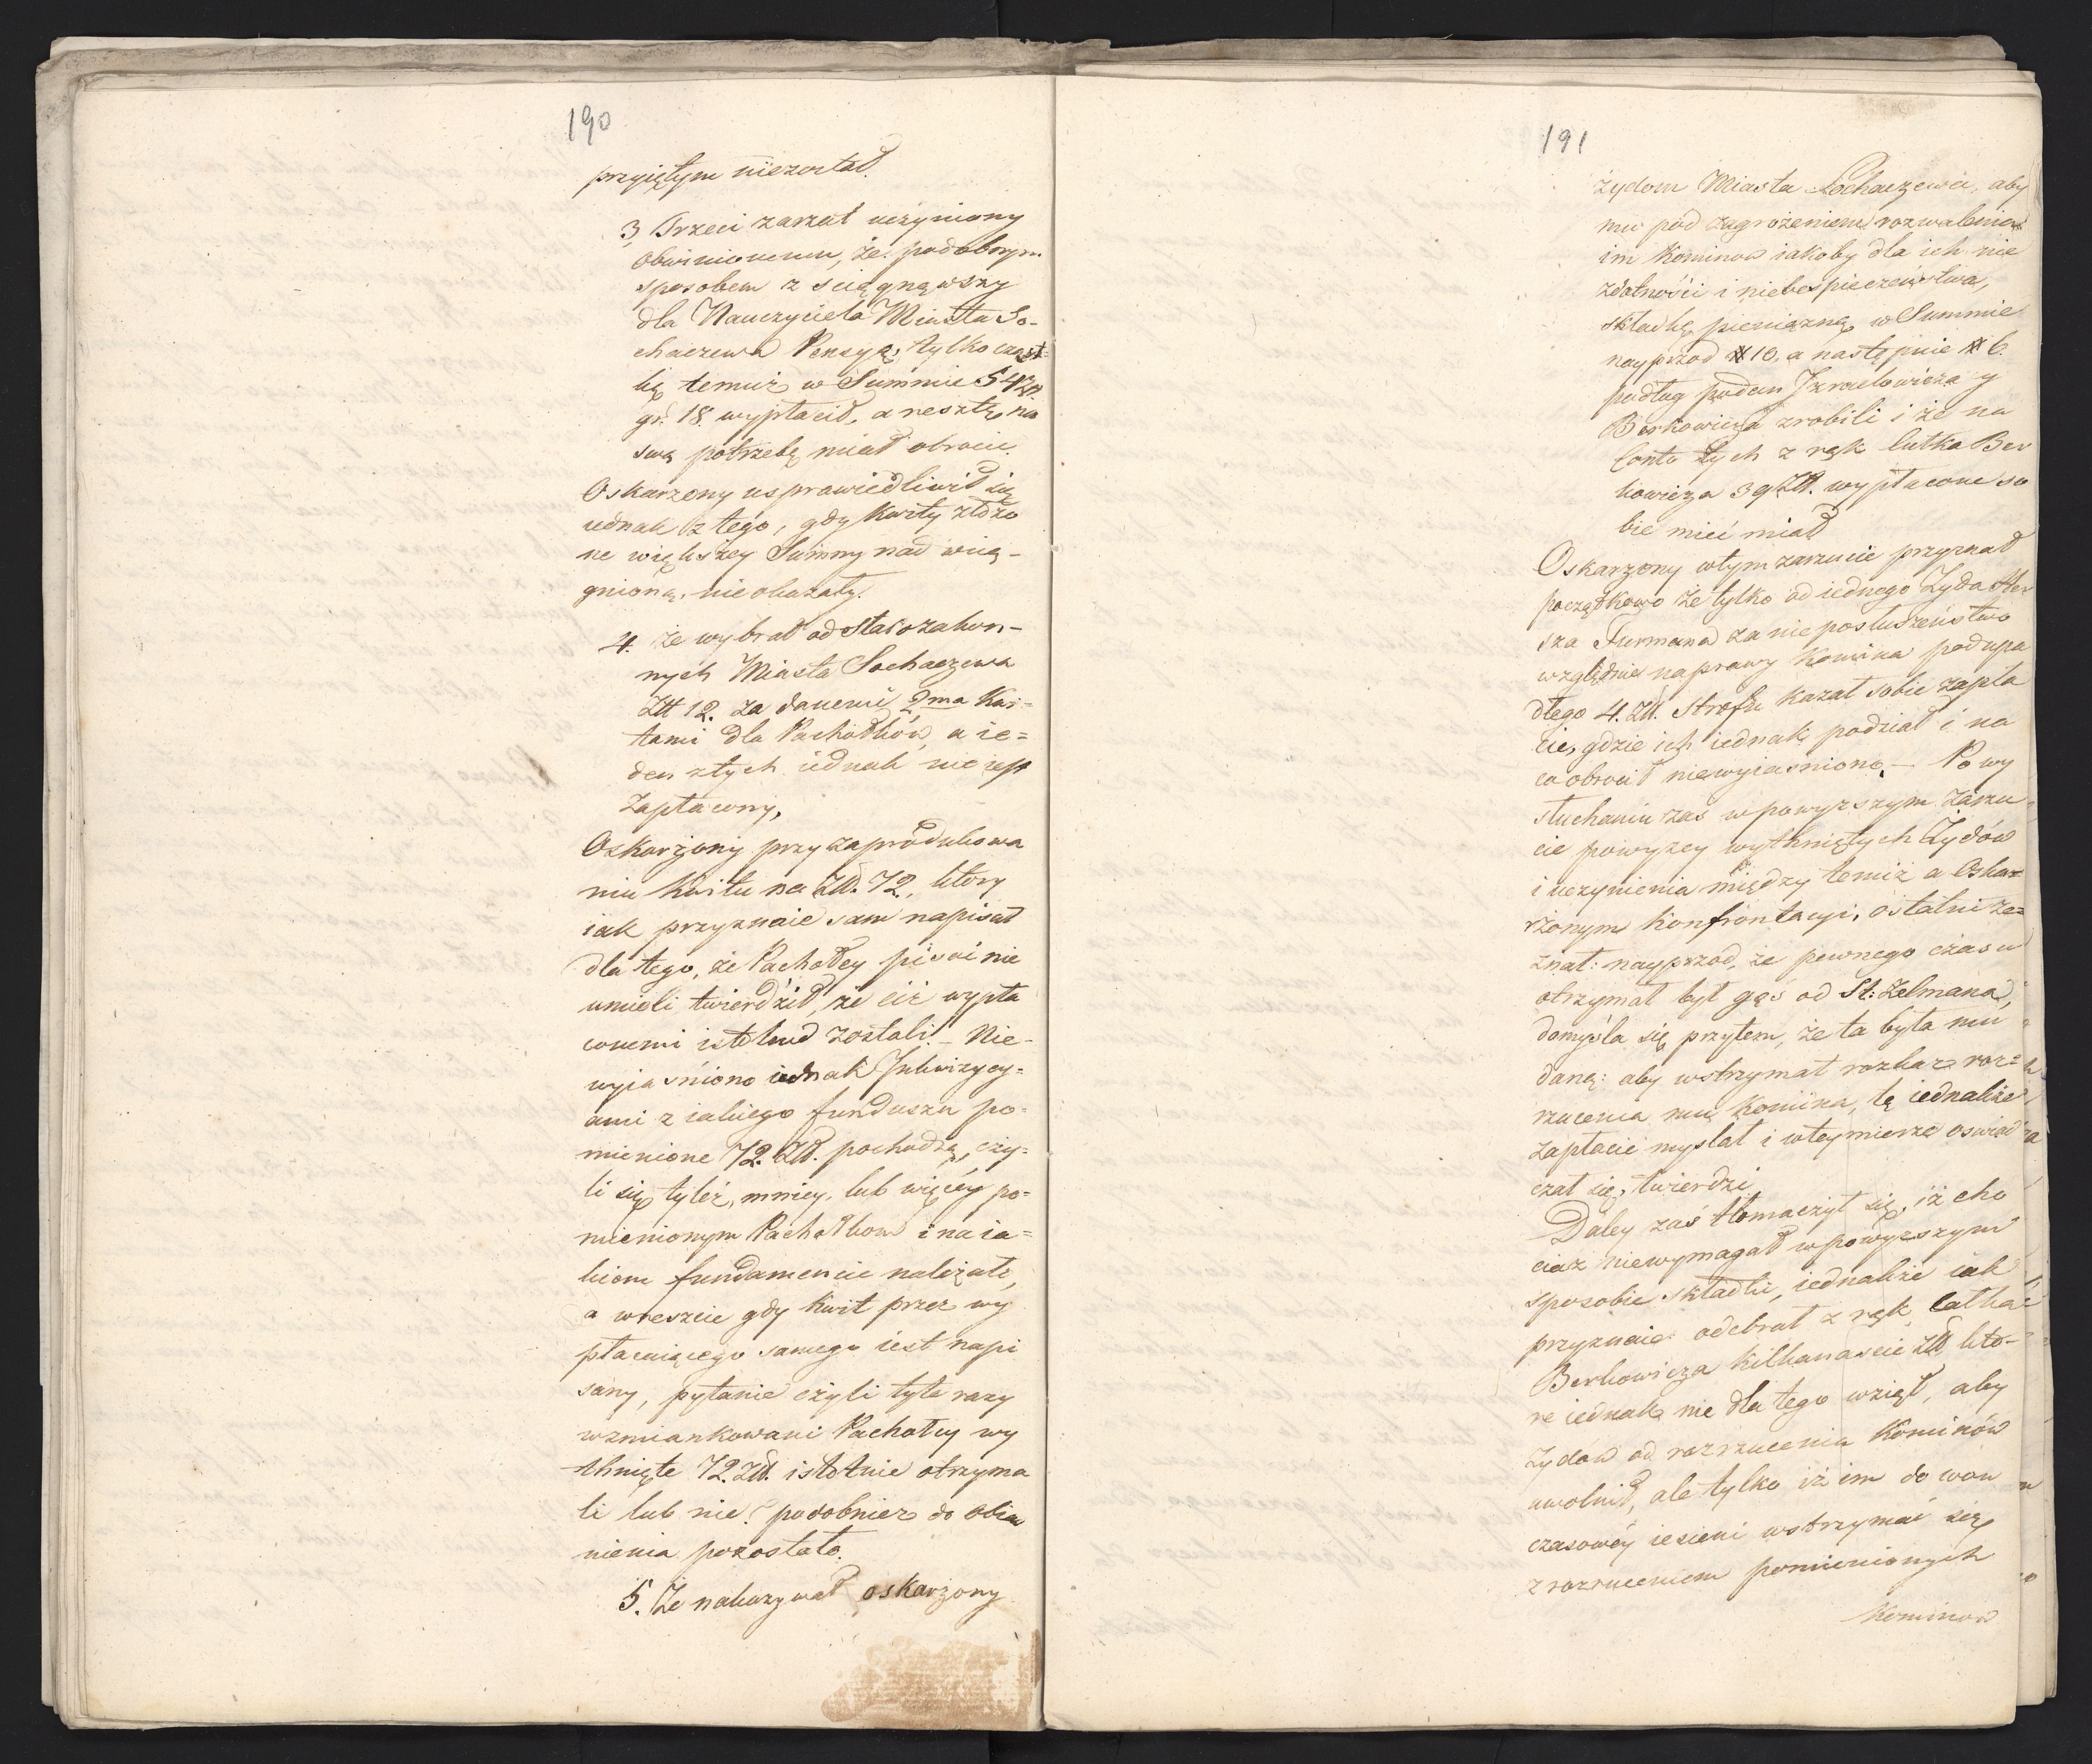 190
przyiętym niezostał.
3, Trzeci zarzut uczyniony
obwinionemu, że podobnym
sposobem z sciągnąwszy
dla Nauczyciela Miasta So-
chaczewa Pensyą, tylko cząst-
kę temuż w Summie 54 Zł.
gr. 18. wypłacił, a resztę na
swą potrzebę miał obrocić.
Oskarzony usprawiedliwił się
iednak z tego, gdy karty złożo
ne większey Summy nad wcią-
gnioną, nie okazały.
4. że wybrał od starozakon-
nych Miasta Sochaczewa
Złł 12. za danemi 2ma Kar-
tami dla Pachołków, a ie-
den z tych iednak nie iest
zapłacony,
Oskarżony przy zaprodukowa
niu kwitu na Złł. 72, ktory
iak przyznaie sam napisał
dla tego, że Pachołcy pisać nie
umieli twierdził, że ciż wypła
conemi istotnie zostali. – Nie-
wyiaśniono iednak Inkwizycy-
ami z iakiego funduszu po-
mienione 72. Złł. pochodzą, czy-
li się tyleż, mniey, lub więcéy po-
mienionym Pachołkom i na ia-
kiem fundamencie należało,
a wreszcie gdy kwit przez wy
płacaiącego samego iest napi
sany, pytanie czyli tyle razy
wzmiankowani Pachołcy wy
tknięte 72. Złł. istotnie otrzyma
li lub nie? podobnież do obia
nienia pozostało.
5. Że nakazywał oskarżony
191
żydom Miasta Sochaczewa, aby
mu pod zagrożeniem rozwalenia
im Kominow iakoby dla ich nie
zdatności i niebespieczeństwa,
składkę pieniązną w Summie
nayprzod # 10, a następnie # 6.
podług podań Izraelowicza y
Berkowicza zrobili i że na
Conto tych z rąk Lutka Ber
kowicza 39 Złł. wypłacone so
bie mieć miał
Oskarzony w tym zarzucie przyznał
początkowo że tylko od iednego Żyda Her
sza Furmana za nie posłuszeństwo
względnie naprawy Komina podupa
dłego 4. Złł. Strofu kazał sobie zapła
cić, gdzie ich iednak podział i na
co obrocił niewyiasniono. – Po wy
słuchaniu zas w powyższym zarzu-
cie powyzey wytkniętych Żydów
i uczynienia między temiż a Oskar=
rżonym Konfrontacyi, ostatni ze=
znał: nayprzod, że pewnego czasu
otrzymał był gęś od St: Zelmana,
domyśla się przytem, że ta była mu
daną: aby wstrzymał rozkaz roz=
rzucenia mu Komina, tę iednakże
zapłacić myślał i w tey mierze oswiad
czał się, twierdzi
Daley zaś tłomaczył się, iż cho
ciaż niewymagał w powyższym
sposobie składki, iednakże iak
przyznaie odebrał z rąk Lutka
Berkowicza kilkanascie Złł, kto-
re iednak nie dla tego wziął, aby
Żydow od rozrzucenia Kominów
uwolnił, ale tylko iż im do won
czasowéy iesieni wstrzymać się
z rozruceniem pomienionych
Kominow